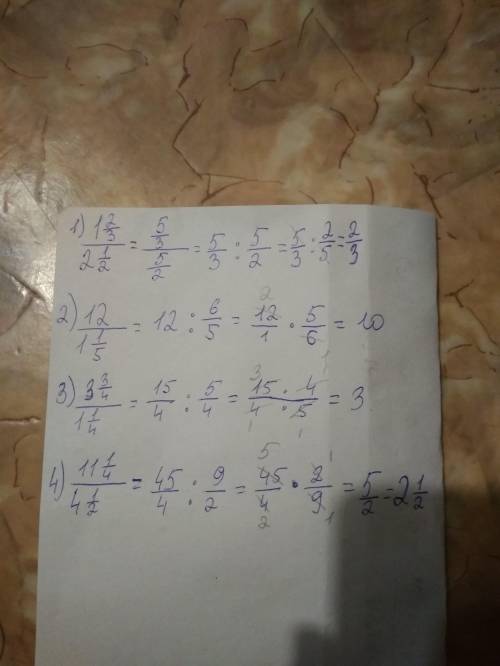 1) 1 2/3 / 2 1/2 = 5/3 / 5/2 = 5/3 : 5/2 = 5/3 : 2/5 = 2/3
2) 12 / 1 1/5 = 12 : 6/5 = 12/1 · 5/6 = 10
3) 3 3/4 / 1 1/4 = 15/4 : 5/4 = 15 · 4 / 4 · 5 = 3
4) 11 1/4 / 4 1/2 = 45/4 : 9/2 = 45/4 · 2/9 = 5/2 = 2 1/2